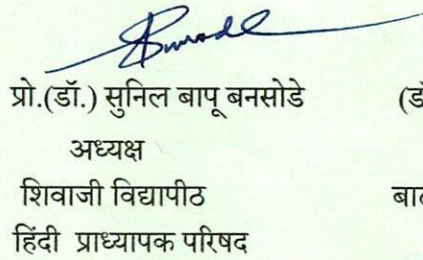 प्रो.(डॉ.) सुनिल बापू बनसोडे (डॉ
अध्यक्ष
शिवाजी विद्यापीठ
हिंदी प्राध्यापक परिषद